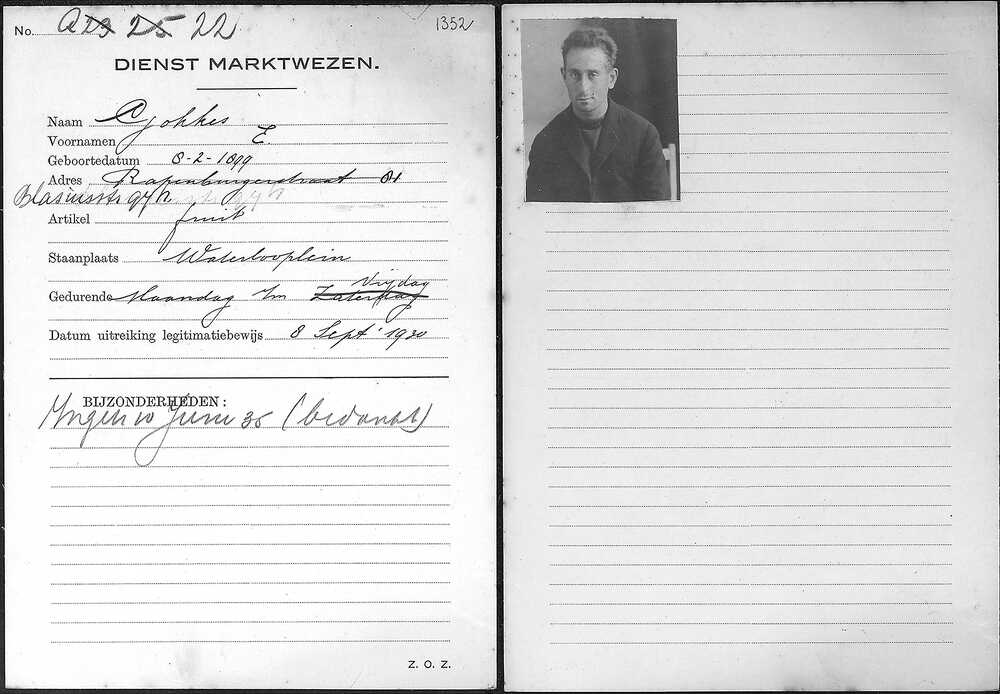 No. A 23 25 22
1352
DIENST MARKTWEZEN.
Naam Cjokkes
Voornamen E.
Geboortedatum 8-2-1899
Adres Rapenburgerstraat 81
Blasiusstr 94 h
Artikel fruit
Staanplaats Waterlooplein
Vrijdag
Gedurende Maandag t/m Zaterdag
Datum uitreiking legitimatiebewijs 8 Sept' 1930
BIJZONDERHEDEN:
Juni 35 (bedankt)
Z. O. Z.